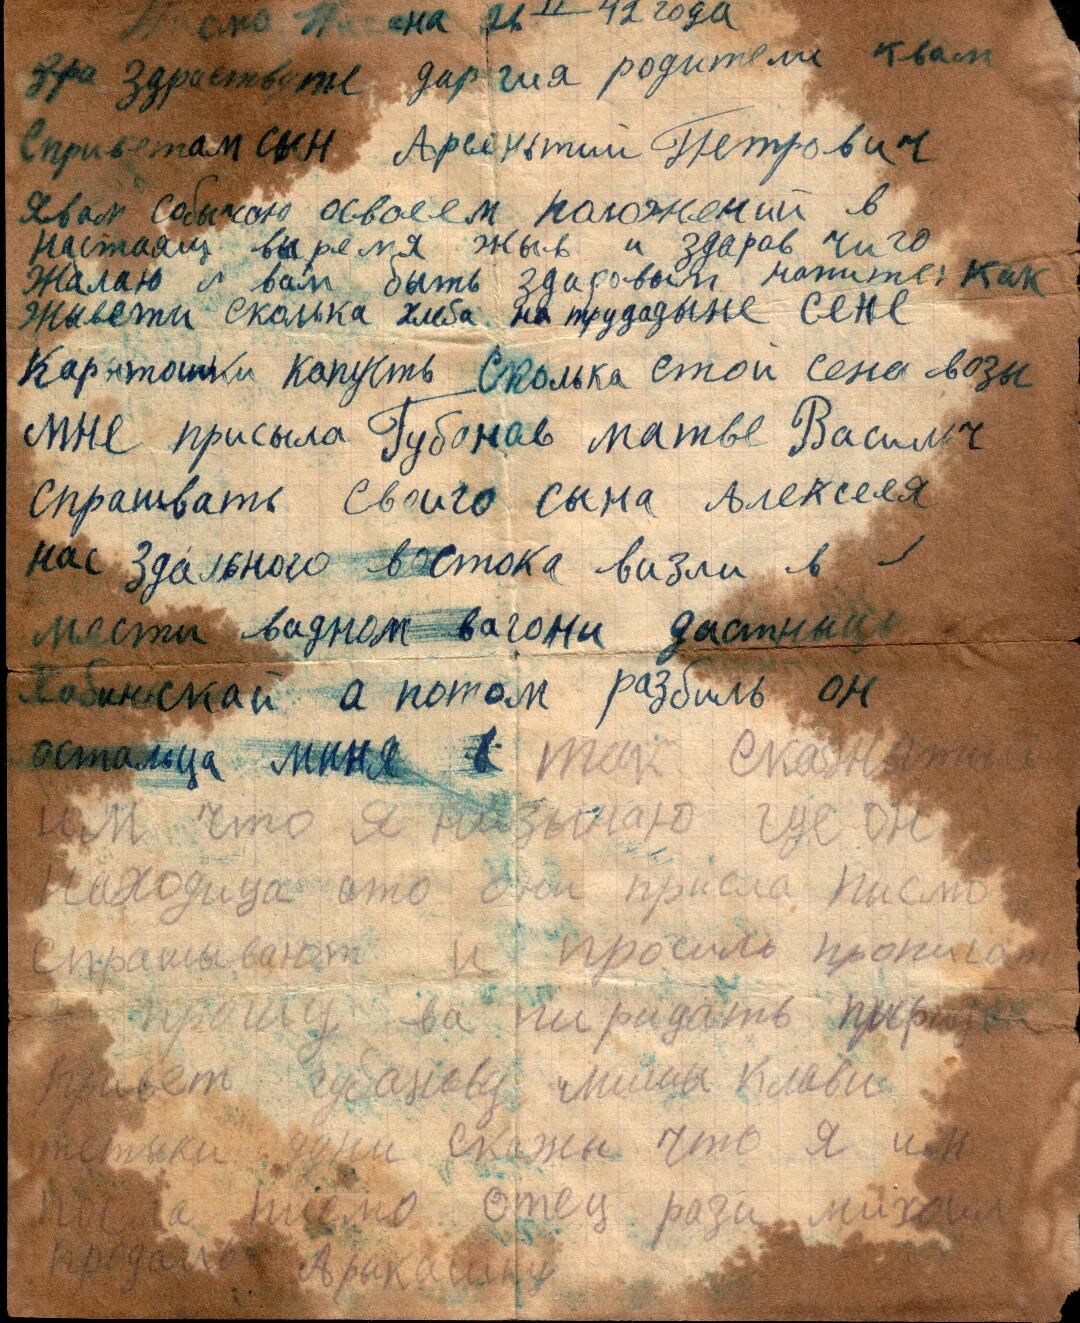 Писмо Писана 26 II-42 года
Зра Здраствуте даргия родители квам
Сприветам сын Арсеньтий Петрович
Явам собычаю осваеем положений в
настоящ выремя жыв и здаров чиго
жалаю и вам быть здаровым как
жывети сколька хлеба на трудадыне сене
Карытошки капусть Сколька стой сена возы
мне присыла Губанав матве Василыч
спрашвать своиго сына Алексея
нас Здального востока визли в
мести вадном вагони дастныць
а потом разбиль он
осталца миня в так
им что я низынаю где он
Находица ото они присла писмо
спрашывают и просиль прописат
прошу ва пиридать
привет губанову миши клави
тетьки дуни скажы что я им
писла писмо отец рази михаил
продаль Арыкашку